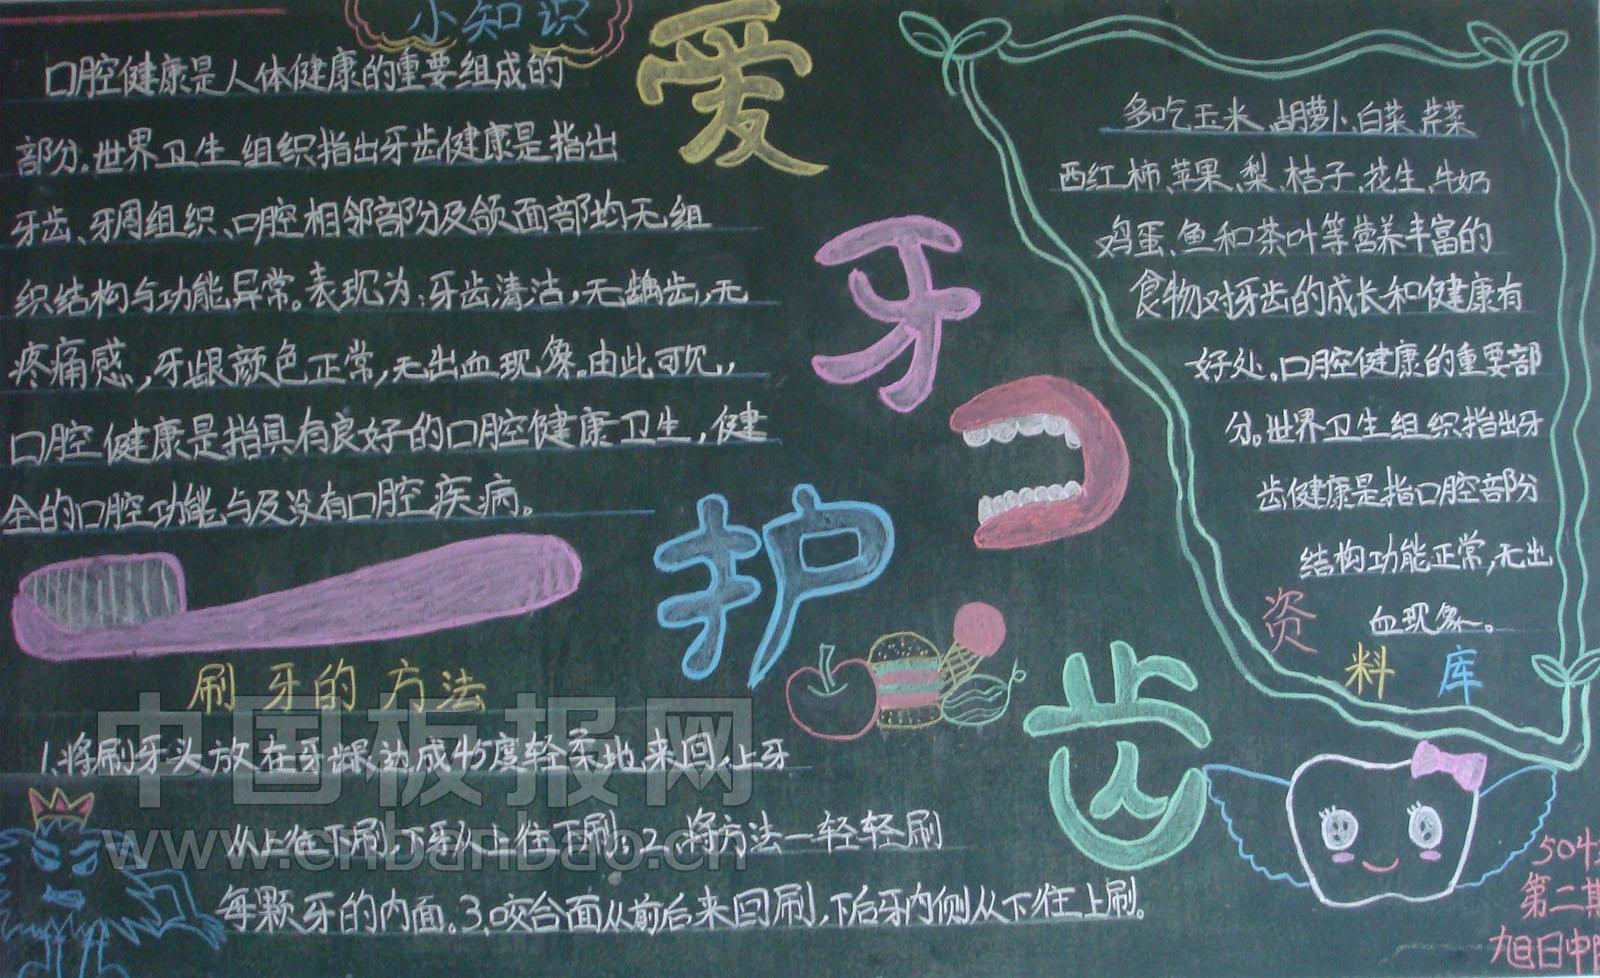 小知识
口腔健康是人体健康的重要组成的
部分。世界卫生组织指出牙齿健康是指出
牙齿、牙周组织、口腔相邻部分及颌面部均无组
织结构与功能异常。表现为:牙齿清洁,无龋齿,无
疼痛感,牙龈颜色正常,无出血现象。由此可见,
口腔健康是指具有良好的口腔健康卫生,健
全的口腔功能与及没有口腔疾病。
爱
牙
护
齿
多吃玉米、胡萝卜、白菜、芹菜
西红柿、苹果、梨、桔子、花生、牛奶
鸡蛋、鱼和茶叶等营养丰富的
食物对牙齿的成长和健康有
好处。口腔健康的重要部
分。世界卫生组织指出牙
齿健康是指口腔部分
结构功能正常,无出
血现象。
资料库
刷牙的方法
1、将刷牙头放在牙龈达成45度轻柔地来回,上牙
从上往下刷,下牙从上住下刷;2、将方法一轻轻刷
每颗牙的内面。3、咬合面从前后来回刷,下后牙内侧从下往上刷。
504
第二期
旭日中
中国板报网
www.cnbanbao.cn